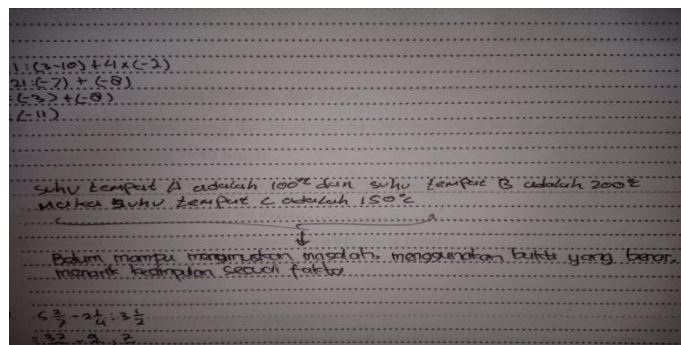 1:(3-10)+4x(-2)
21:(-7) + (-8)
(-3)+(-8)
(-11)
suhu tempat A adalah 100°C dan suhu tempat B adalah 200°C
Maka suhu tempat C adalah 150°C
Belum mampu merumuskan masalah, menggunakan bukti yang benar,
menarik kesimpulan sesuai fakta
5 2/7 - 2 1/4 : 3 1/2